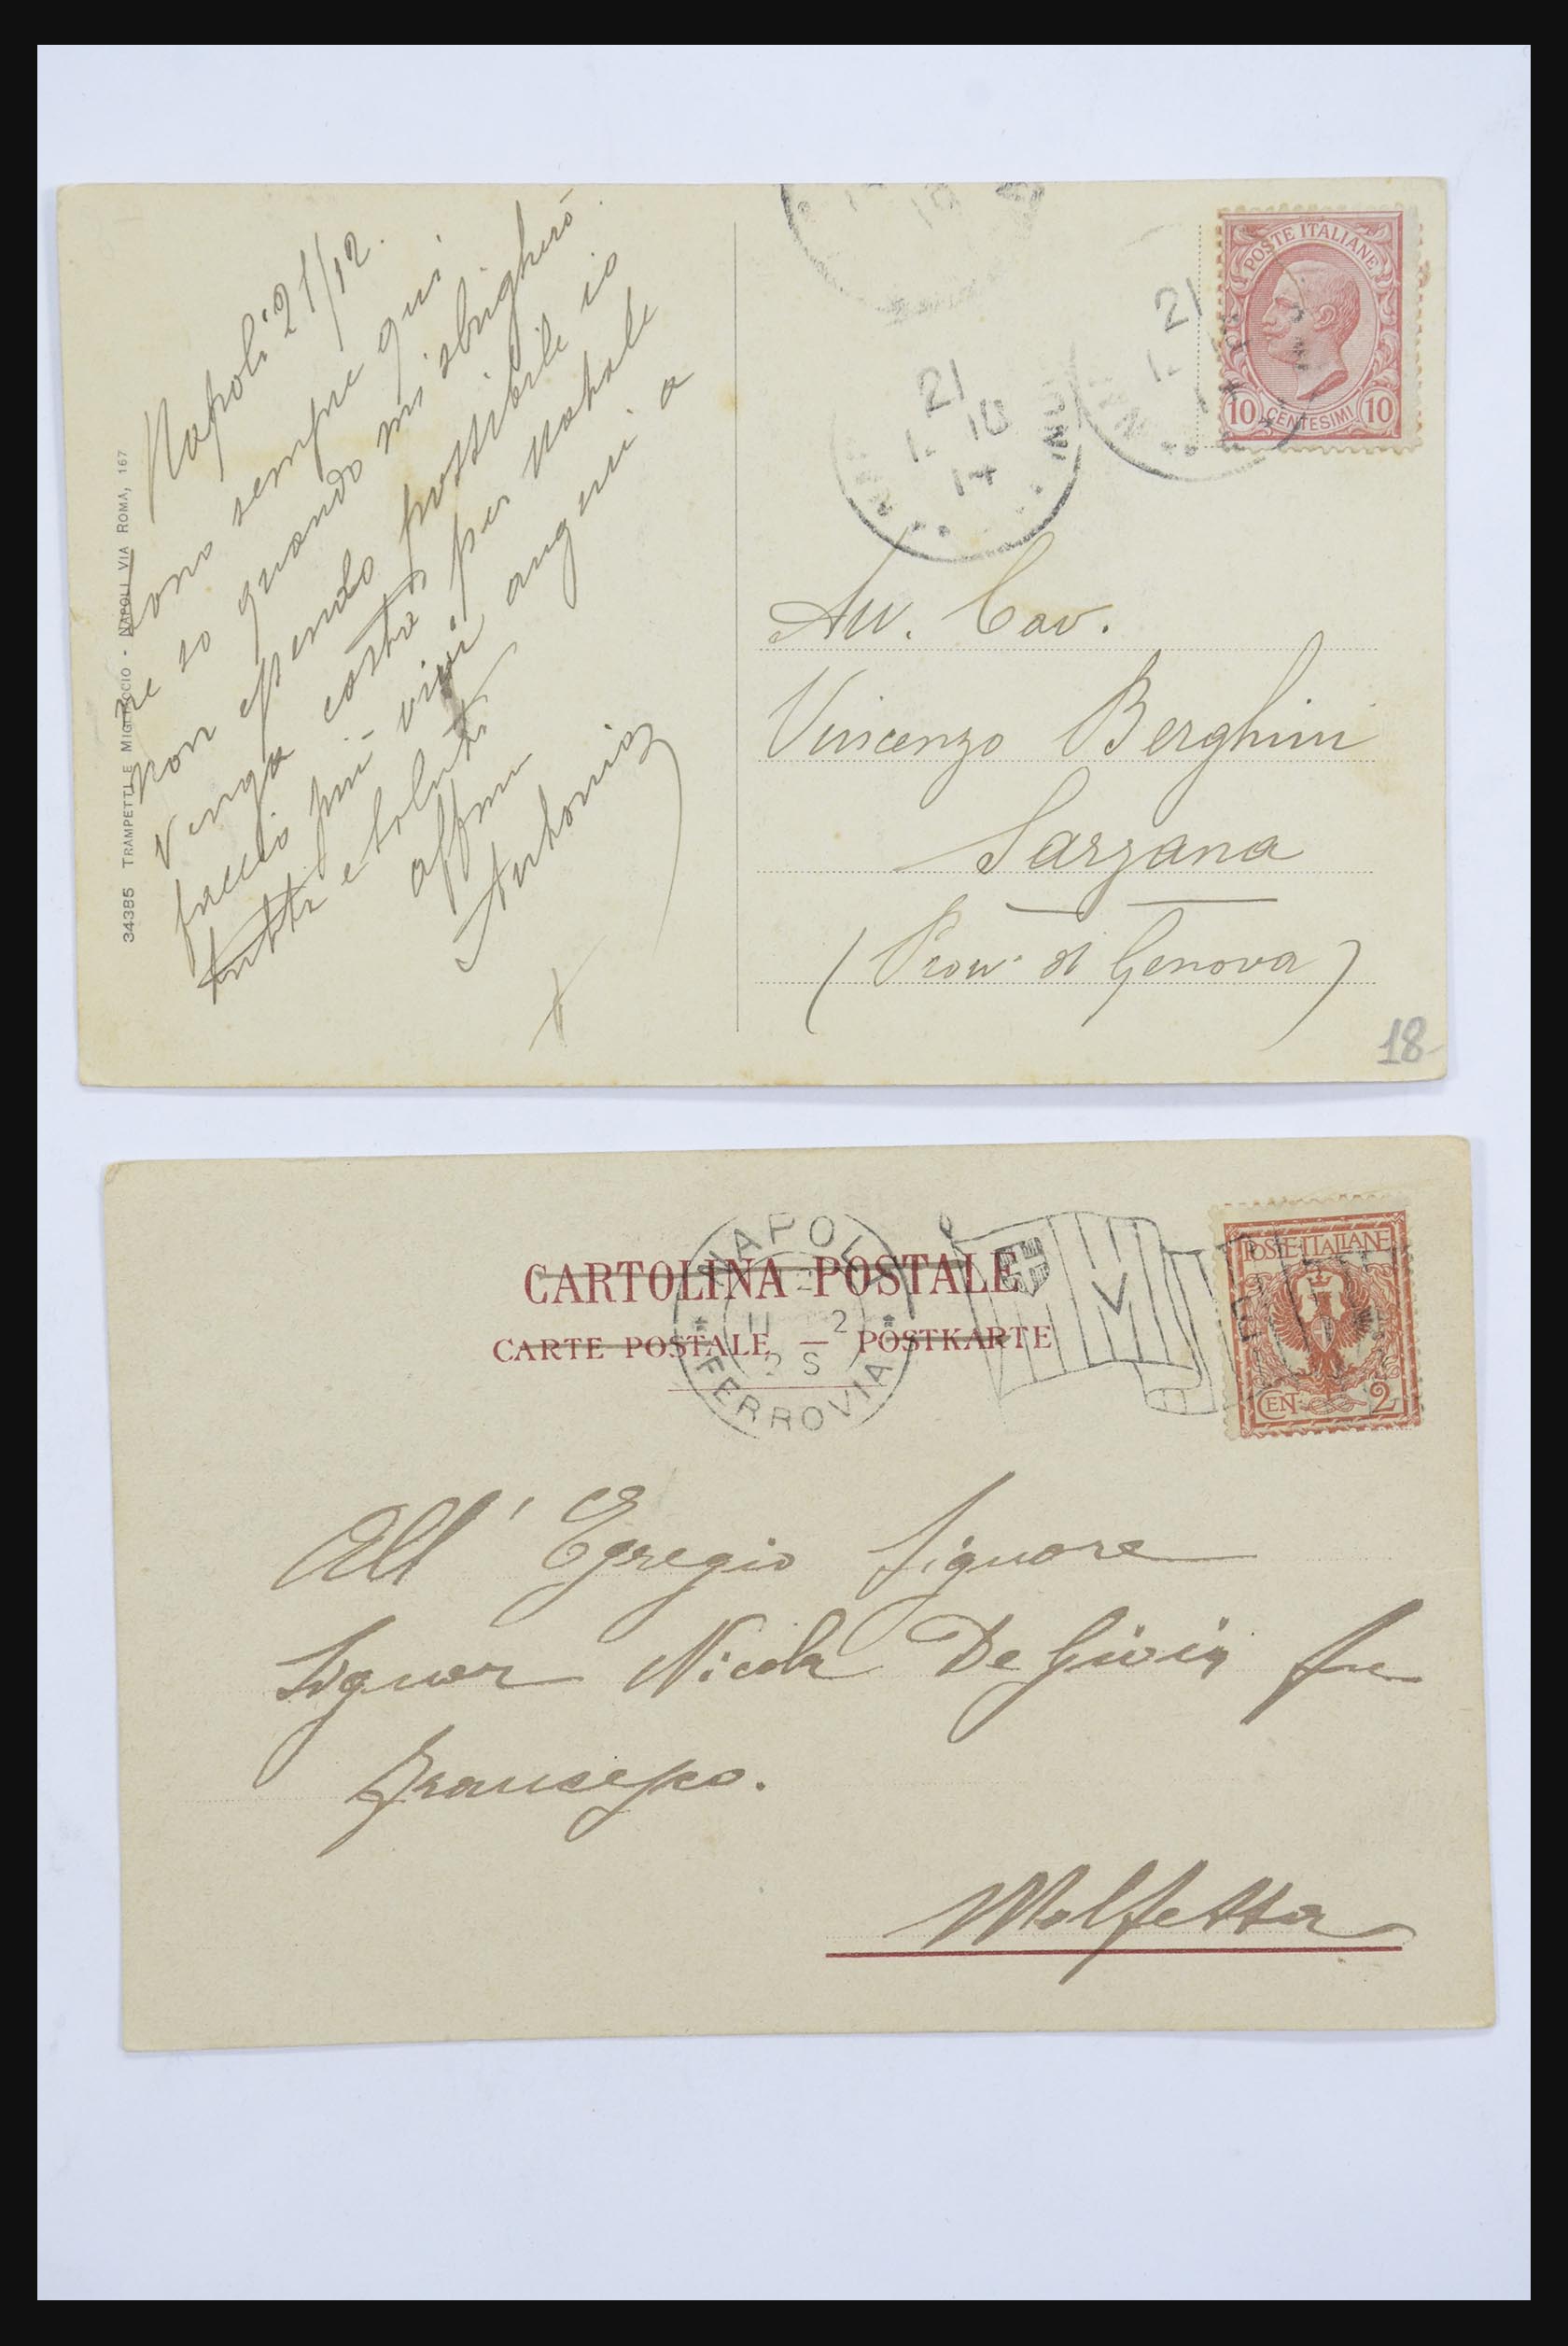 Napoli 21/12.
sono sempre qui
ne so quando mi sbrigherò
non essendo possibile io
venga costà per natale
faccio più vivi auguri a
tutti e saluti
affmo
Antonio
34385 TRAMPETTI E MIGLIACCIO - NAPOLI VIA ROMA, 167
POSTE ITALIANE
10 CENTESIMI 10
21
21
14
Avv. Cav.
Vincenzo Berghini
Sarzana
(Prov. di Genova)
18
CARTOLINA POSTALE
CARTE POSTALE — POSTKARTE
NAPOLI
11 2
S
FERROVIA
POSTE ITALIANE
CEN 2
All' Egregio Signore
Signor Nicola De Gioia fu
Francesco.
Molfetta